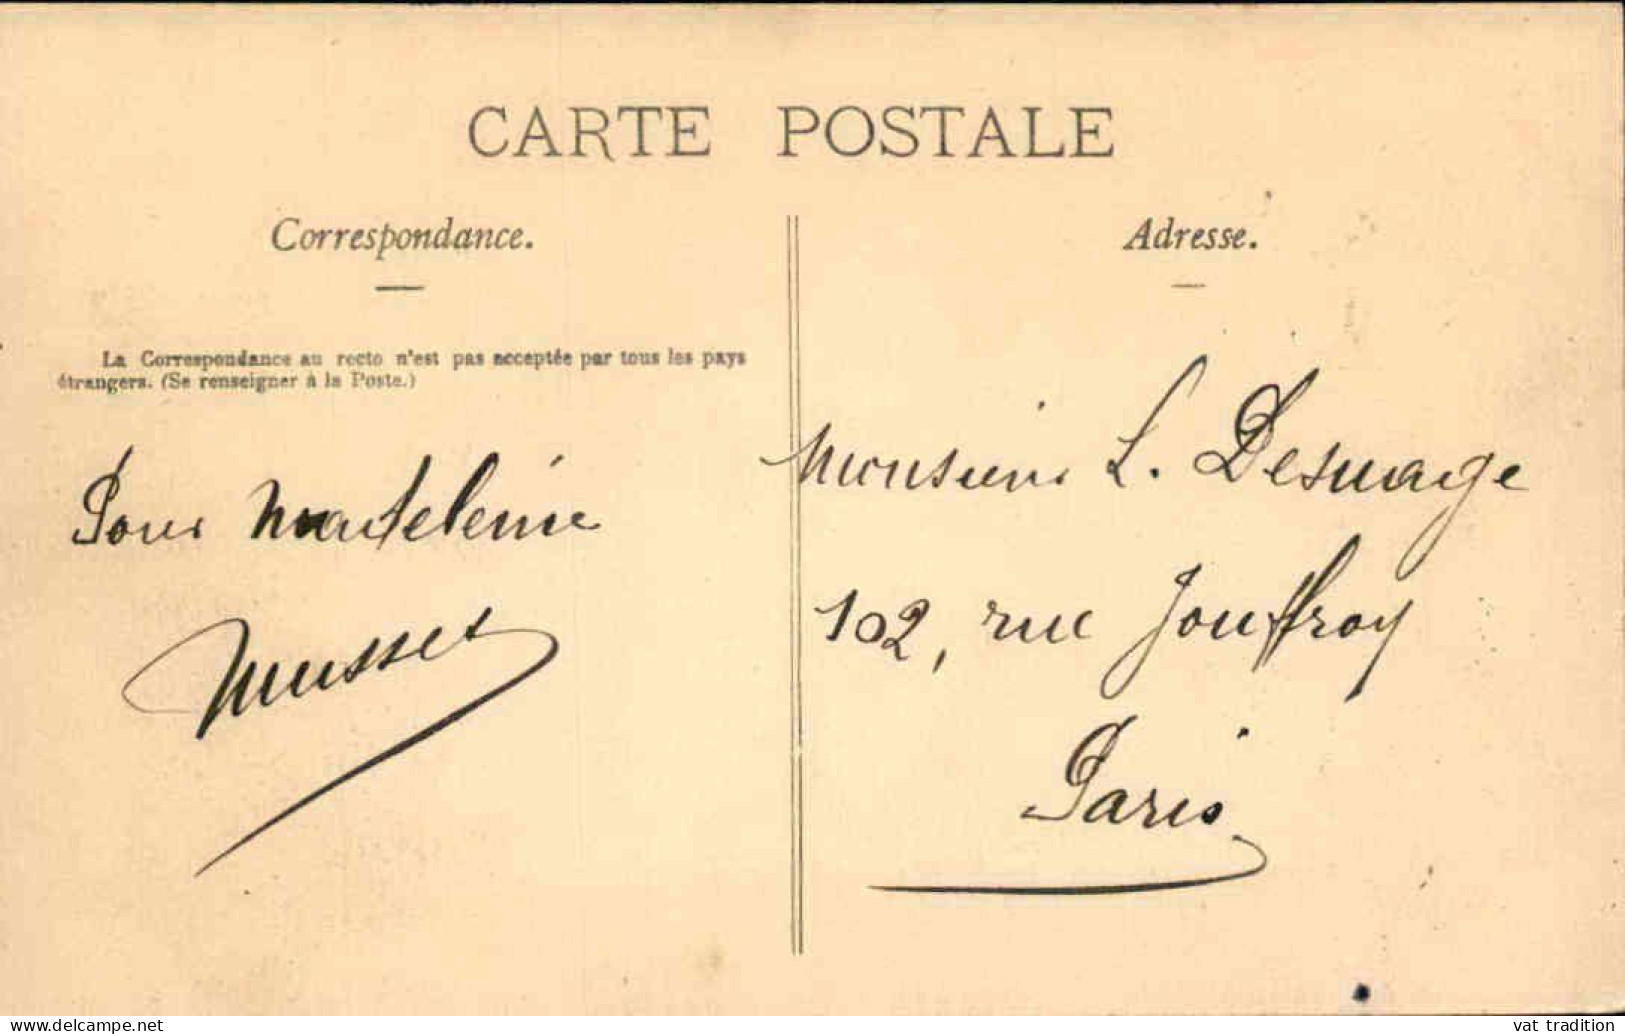 CARTE POSTALE
Correspondance.
La Correspondance au recto n'est pas acceptée par tous les pays
étrangers. (Se renseigner à la Poste.)
Pour Madeleine
Musset
Adresse.
Monsieur L. Desmage
102, rue Jouffroy
Paris
www.delcampe.net
vat_tradition